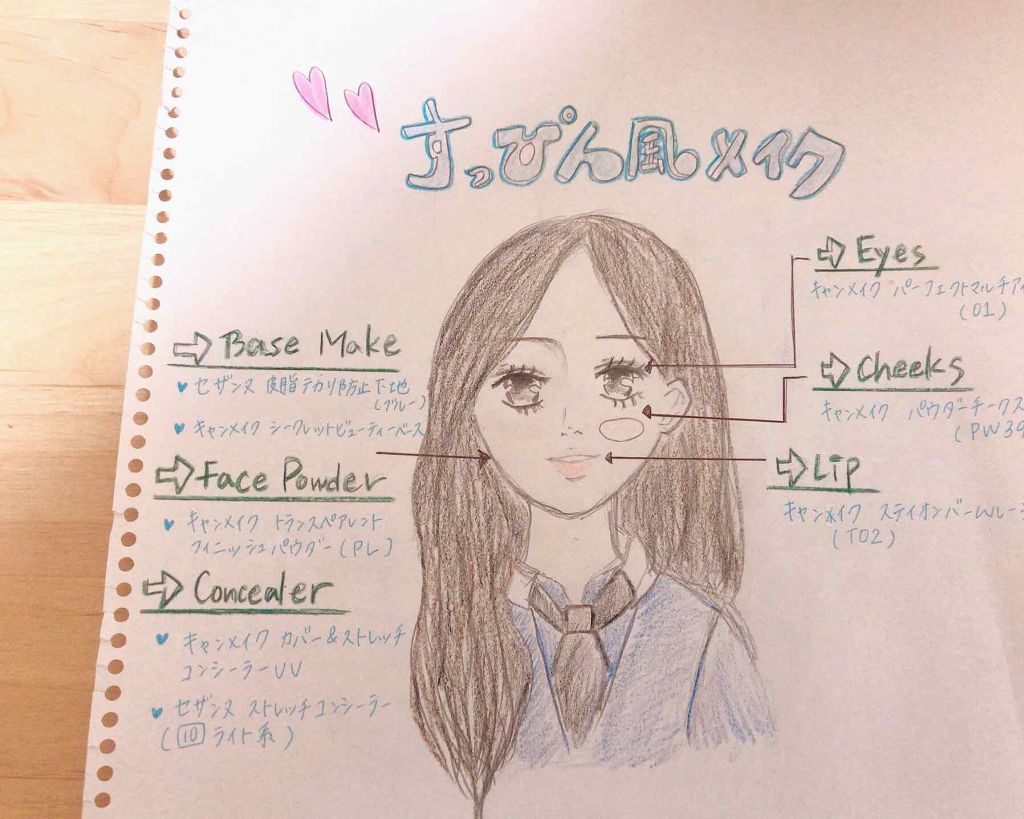 すっぴん風メイク
Base Make
セザンヌ 皮脂テカリ防止下地
(ブルー)
キャンメイク シークレットビューティーベース
Face Powder
キャンメイク トランスペアレント
フィニッシュパウダー(PL)
Concealer
キャンメイク カバー&ストレッチ
コンシーラーUV
セザンヌ ストレッチコンシーラー
(10 ライト系)
Eyes
キャンメイク パーフェクトマルチアイ
(01)
Cheeks
キャンメイク パウダーチークス
(PW39
Lip
キャンメイク ステイオンバームルー
(T02)